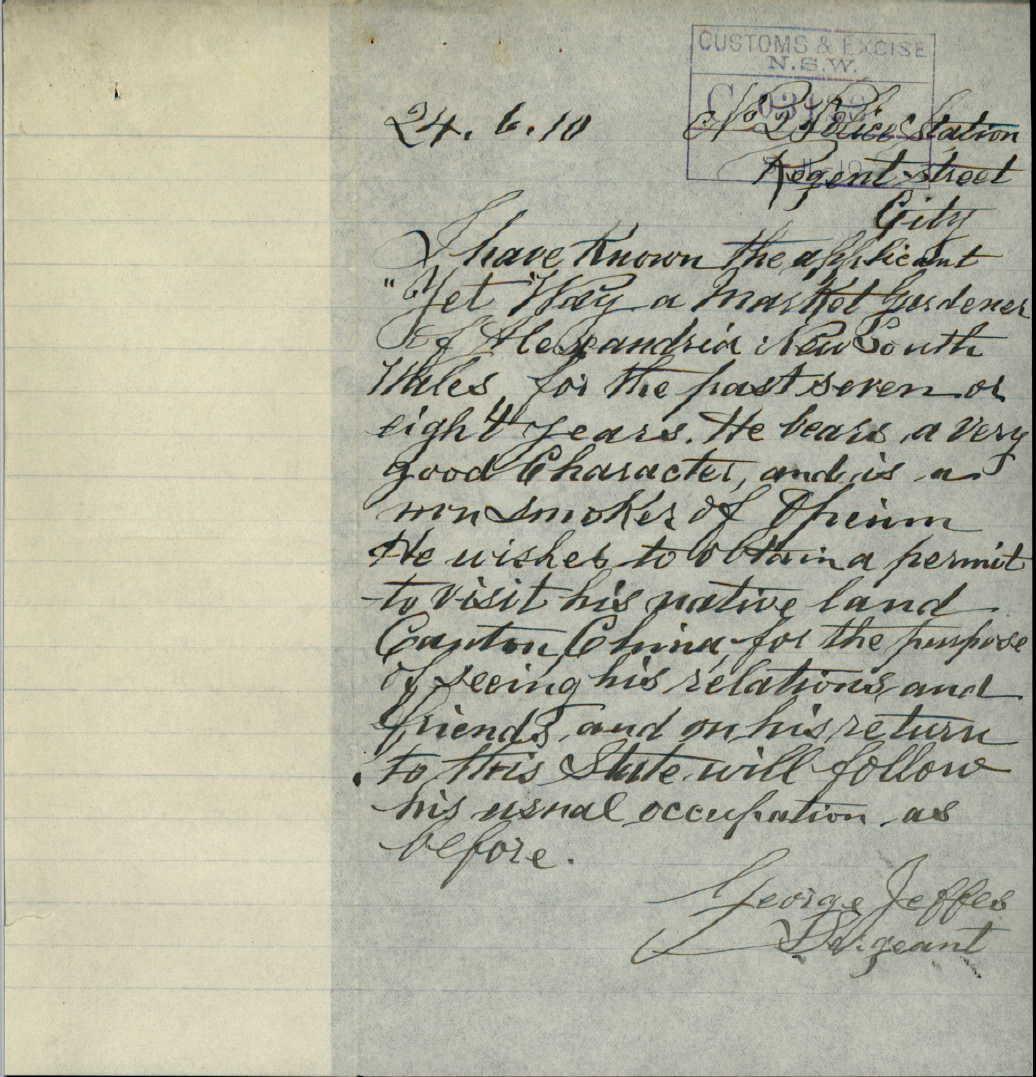 CUSTOMS & EXCISE
N.S.W.
24.6.10 No 2 Police Station
Regent Street
City
I have known the applicant
"Yet Way" a Market Gardener
of Alexandria New South
Wales for the past seven or
eight years. He bears a very
good Character, and is a
non smoker of Opeium
He wishes to obtain a permit
to visit his native land
Canton China, for the purpose
of seeing his relations and
friends, and on his return
to this State will follow
his usual occupation as
before.
George Jeffes
Sergeant